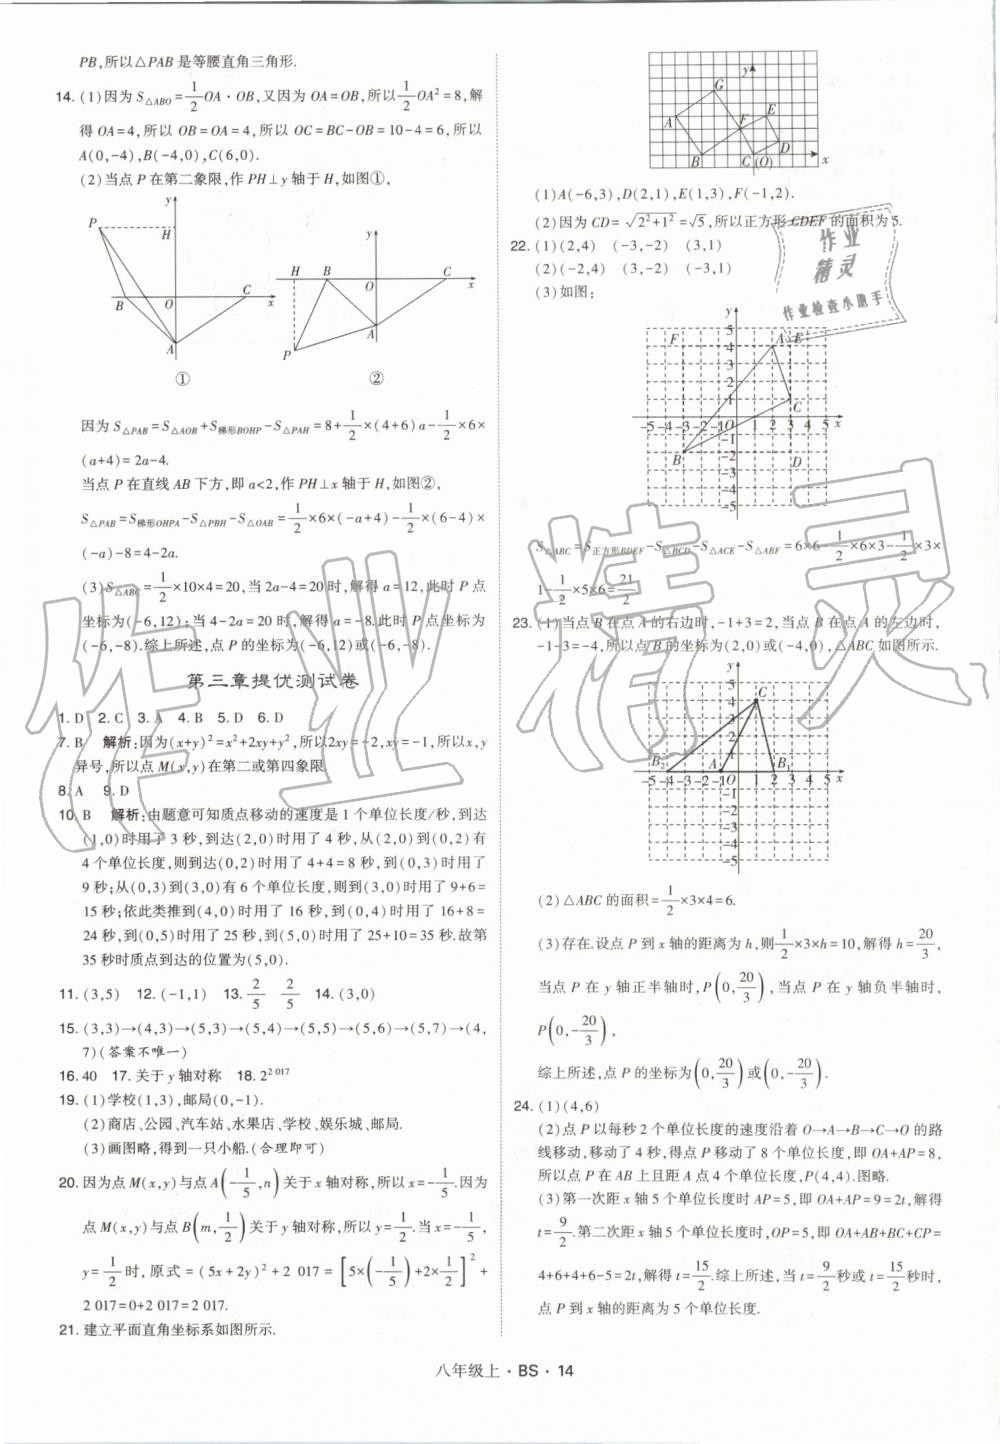 PB,所以△PAB是等腰直角三角形.
14. (1)因为S△ABO=1/2OA·OB,又因为OA=OB,所以1/2OA²=8,解
得OA=4,所以OB=OA=4,所以OC=BC-OB=10-4=6,所以
A(0,-4),B(-4,0),C(6,0).
(2)当点P在第二象限,作PH⊥y轴于H,如图①,
y
P
H
B
O
C
x
A
①
y
H
B
O
C
x
A
P
②
因为S△PAB=S△AOB+S梯形BOHP-S△PAH=8+1/2×(4+6)a-1/2×6×
(a+4)=2a-4.
当点P在直线AB下方,即a<2,作PH⊥x轴于H,如图②,
S△PAB=S梯形OHPA-S△PBH-S△OAB=1/2×6×(-a+4)-1/2×(6-4)×
(-a)-8=4-2a.
(3)S△ABC=1/2×10×4=20,当2a-4=20时,解得a=12,此时P点
坐标为(-6,12);当4-2a=20时,解得a=-8.此时P点坐标为
(-6,-8).综上所述,点P的坐标为(-6,12)或(-6,-8).
第三章提优测试卷
1. D 2. C 3. A 4. B 5. D 6. D
7. B 解析:因为(x+y)²=x²+2xy+y²,所以2xy=-2,xy=-1,所以x,y
异号,所以点M(x,y)在第二或第四象限.
8. A 9. D
10. B 解析:由题意可知质点移动的速度是1个单位长度/秒,到达
(1,0)时用了3秒,到达(2,0)时用了4秒,从(2,0)到(0,2)有
4个单位长度,则到达(0,2)时用了4+4=8秒,到(0,3)时用了
9秒;从(0,3)到(3,0)有6个单位长度,则到(3,0)时用了9+6=
15秒;依此类推到(4,0)时用了16秒,到(0,4)时用了16+8=
24秒,到(0,5)时用了25秒,到(5,0)时用了25+10=35秒.故第
35秒时质点到达的位置为(5,0).
11. (3,5) 12. (-1,1) 13. 2/5 2/5 14. (3,0)
15. (3,3)→(4,3)→(5,3)→(5,4)→(5,5)→(5,6)→(5,7)→(4,
7)(答案不唯一)
16. 40 17. 关于y轴对称 18. 2²⁰¹⁷
19. (1)学校(1,3),邮局(0,-1).
(2)商店、公园、汽车站、水果店、学校、娱乐城、邮局.
(3)画图略,得到一只小船.(合理即可)
20. 因为点M(x,y)与点A(-1/5,n)关于x轴对称,所以x=-1/5.因为
点M(x,y)与点B(m,1/2)关于y轴对称,所以y=1/2.当x=-1/5,
y=1/2时,原式=(5x+2y)²+2 017=[5×(-1/5)+2×1/2]²+
2 017=0+2 017=2 017.
21. 建立平面直角坐标系如图所示.
y
G
A
F
E
D
B
C(O)
x
(1)A(-6,3),D(2,1),E(1,3),F(-1,2).
(2)因为CD=√(2²+1²)=√5,所以正方形CDEF的面积为5.
22. (1)(2,4) (-3,-2) (3,1)
(2)(-2,4) (3,-2) (-3,1)
(3)如图:
作业
精灵
作业检查小助手
y
F 5 A E
4
3
2
1 C
-5 -4 -3 -2 -1 O 1 2 3 4 5 x
-1
B -2 D
-3
-4
-5
S△ABC=S正方形BDEF-S△BCD-S△ACE-S△ABF=6×6-1/2×6×3-1/2×3×
1-1/2×5×6=21/2
23. (1)当点B在点A的右边时,-1+3=2,当点B在点A的左边时,
-1-3=-4,所以点B的坐标为(2,0)或(-4,0),△ABC如图所示.
y
5
4 C
3
2
B₂ 1 A B₁
-5 -4 -3 -2 -1 O 1 2 3 4 5 x
-1
-2
-3
-4
-5
(2)△ABC的面积=1/2×3×4=6.
(3)存在.设点P到x轴的距离为h,则1/2×3×h=10,解得h=20/3,
当点P在y轴正半轴时,P(0,20/3),当点P在y轴负半轴时,
P(0,-20/3),
综上所述,点P的坐标为(0,20/3)或(0,-20/3).
24. (1)(4,6)
(2)点P以每秒2个单位长度的速度沿着O→A→B→C→O的路
线移动,移动了4秒,得点P移动了8个单位长度,即OA+AP=8,
所以点P在AB上且距A点4个单位长度,P(4,4).图略.
(3)第一次距x轴5个单位长度时AP=5,即OA+AP=9=2t,解得
t=9/2.第二次距x轴5个单位长度时,OP=5,即OA+AB+BC+CP=
4+6+4+6-5=2t,解得t=15/2.综上所述,当t=9/2秒或t=15/2秒时,
点P到x轴的距离为5个单位长度.
作业精灵
八年级上·BS·14